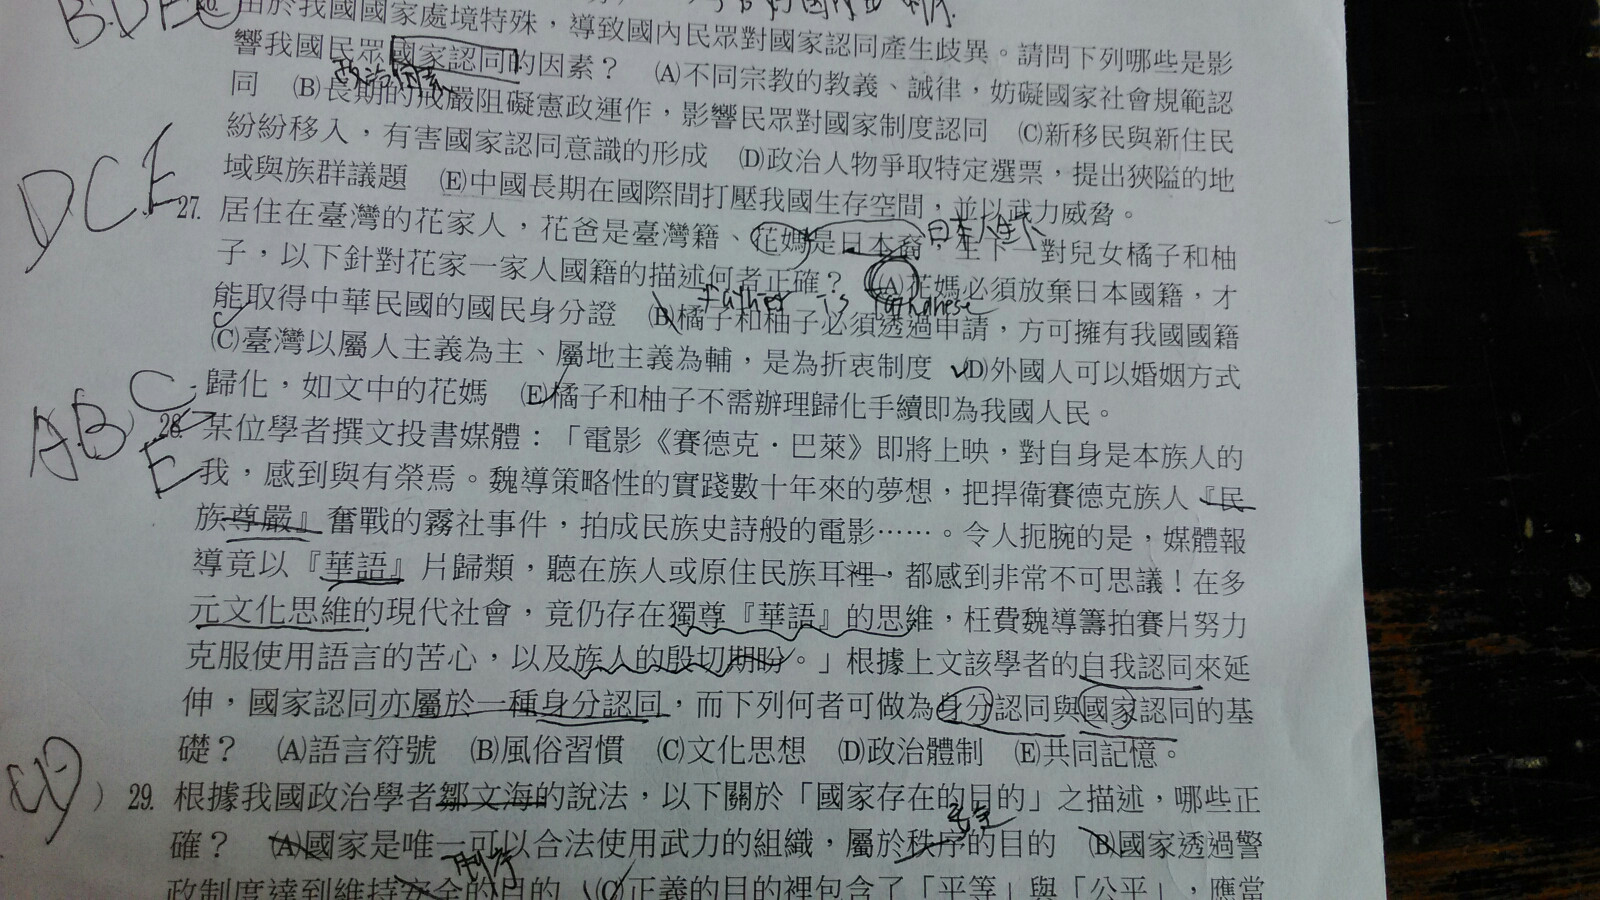 BDE
由於我國國家處境特殊，導致國內民眾對國家認同產生歧異。請問下列哪些是影
響我國民眾國家認同的因素？ (A)不同宗教的教義、誡律，妨礙國家社會規範認
同 (B)長期的戒嚴阻礙憲政運作，影響民眾對國家制度認同 (C)新移民與新住民
紛紛移入，有害國家認同意識的形成 (D)政治人物爭取特定選票，提出狹隘的地
域與族群議題 (E)中國長期在國際間打壓我國生存空間，並以武力威脅。
DCE
日本人
27. 居住在臺灣的花家人，花爸是臺灣籍、花媽是日本裔，生下一對兒女橘子和柚
子，以下針對花家一家人國籍的描述何者正確？ (A)花媽必須放棄日本國籍，才
father is
能取得中華民國的國民身分證 (B)橘子和柚子必須透過申請，方可擁有我國國籍
(C)臺灣以屬人主義為主、屬地主義為輔，是為折衷制度 (D)外國人可以婚姻方式
歸化，如文中的花媽 (E)橘子和柚子不需辦理歸化手續即為我國人民。
ABC
E
28. 某位學者撰文投書媒體：「電影《賽德克・巴萊》即將上映，對自身是本族人的
我，感到與有榮焉。魏導策略性的實踐數十年來的夢想，把捍衛賽德克族人『民
族尊嚴』奮戰的霧社事件，拍成民族史詩般的電影……。令人扼腕的是，媒體報
導竟以『華語』片歸類，聽在族人或原住民族耳裡，都感到非常不可思議！在多
元文化思維的現代社會，竟仍存在獨尊『華語』的思維，枉費魏導籌拍賽片努力
克服使用語言的苦心，以及族人的殷切期盼。」根據上文該學者的自我認同來延
伸，國家認同亦屬於一種身分認同，而下列何者可做為身分認同與國家認同的基
礎？ (A)語言符號 (B)風俗習慣 (C)文化思想 (D)政治體制 (E)共同記憶。
) 29. 根據我國政治學者鄒文海的說法，以下關於「國家存在的目的」之描述，哪些正
安全
確？ (A)國家是唯一可以合法使用武力的組織，屬於秩序的目的 (B)國家透過警
秩序
政制度達到維持安全的目的 (C)正義的目的裡包含了「平等」與「公平」，應當